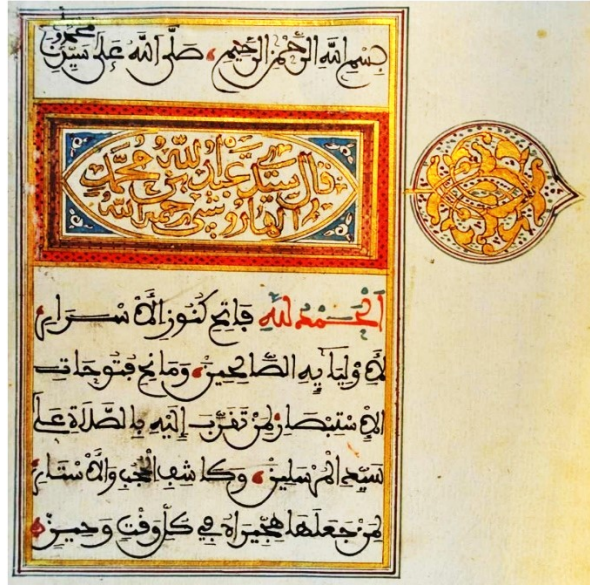 بسم الله الرحمن الرحيم صلى الله على سيدنا محمد
قال سيد عبد الله بن محمد
الهاروشي رحمه الله
الحمد لله فاتح كنوز الأسرار
لأوليايه الصالحين ومانح فتوحات
الاستبصار لمن تقرب إليه بالصلاة على
سيد المرسلين وكاشف الحجب والأستار
لمن جعلها هجيراه في كل وقت وحين